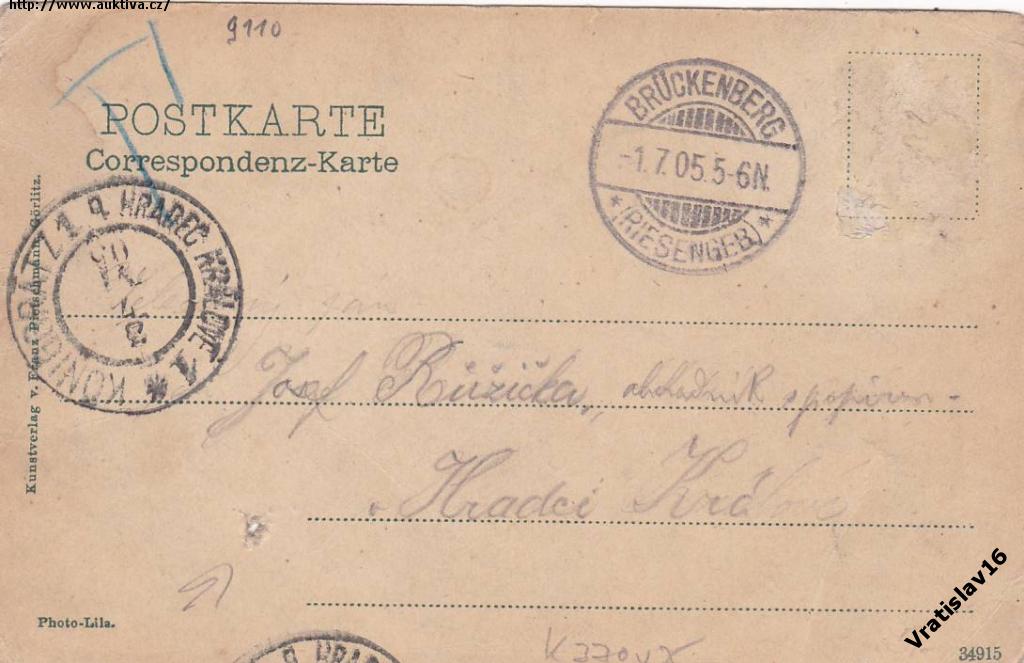 http://www.auktiva.cz/
9110
POSTKARTE
Correspondenz-Karte
BRÜCKENBERG
-1.7.05.5-6N.
* (RIESENGEB.) *
KÖNIGGRÄTZ 1 * HRADEC KRÁLOVÉ 1
Kunstverlag v. Franz Pietschmann, Görlitz.
pán
Josef Růžička, obchodník s papírem -
v Hradci Králové
Photo-Lila.
HRADEC KRÁ
34915
Vratislav16